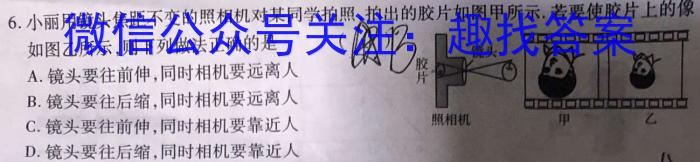 6.小丽用镜头焦距不变的照相机对某同学拍照,拍出的胶片如图甲所示.若要使胶片上的像
如图乙所示,则下列做法正确的是
微信公众号关注:趣找答案
A.镜头要往前伸,同时相机要远离人
B.镜头要往后缩,同时相机要远离人
C.镜头要往前伸,同时相机要靠近人
D.镜头要往后缩,同时相机要靠近人
胶片
镜头
照相机 甲 乙